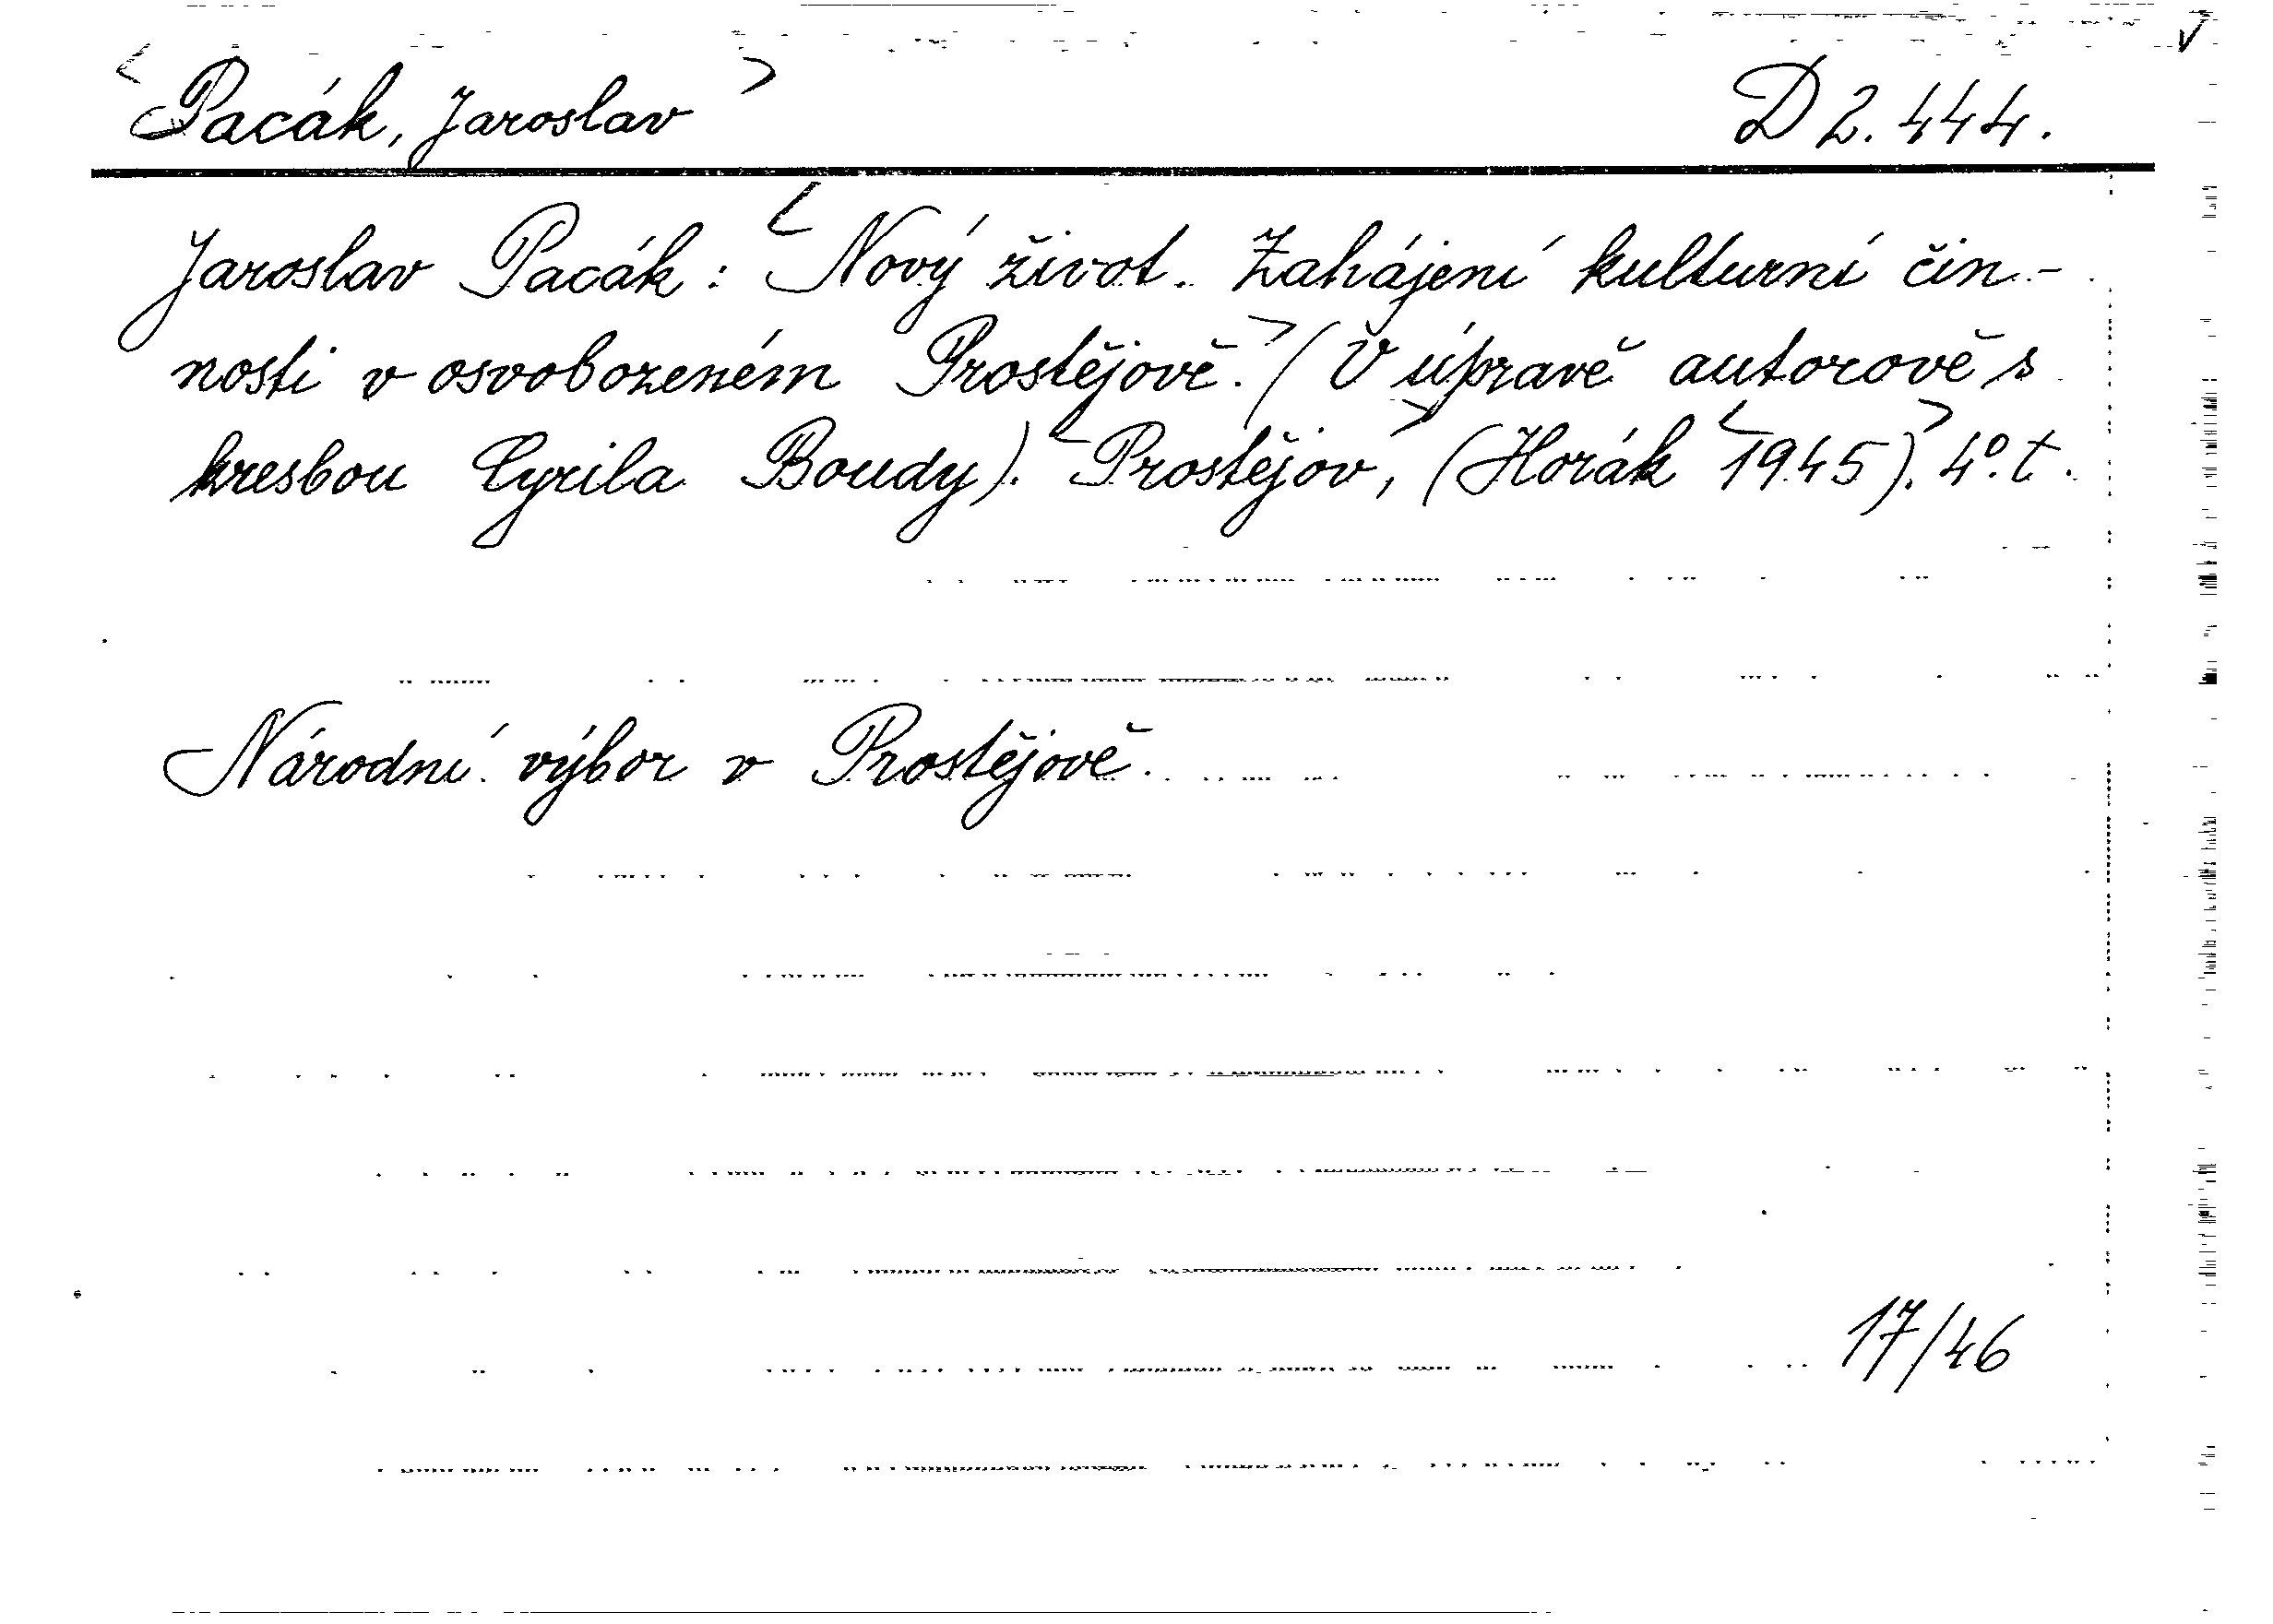 <Pacák, Jaroslav> D 2.444.
Jaroslav Pacák: <Nový život. Zahájení kulturní čin-
nosti v osvobozeném Prostějově.> (V úpravě autorově s
kresbou Cyrila Boudy). <Prostějov,> (Horák <1945>). 4°. t.
Národní výbor v Prostějově.
17/46